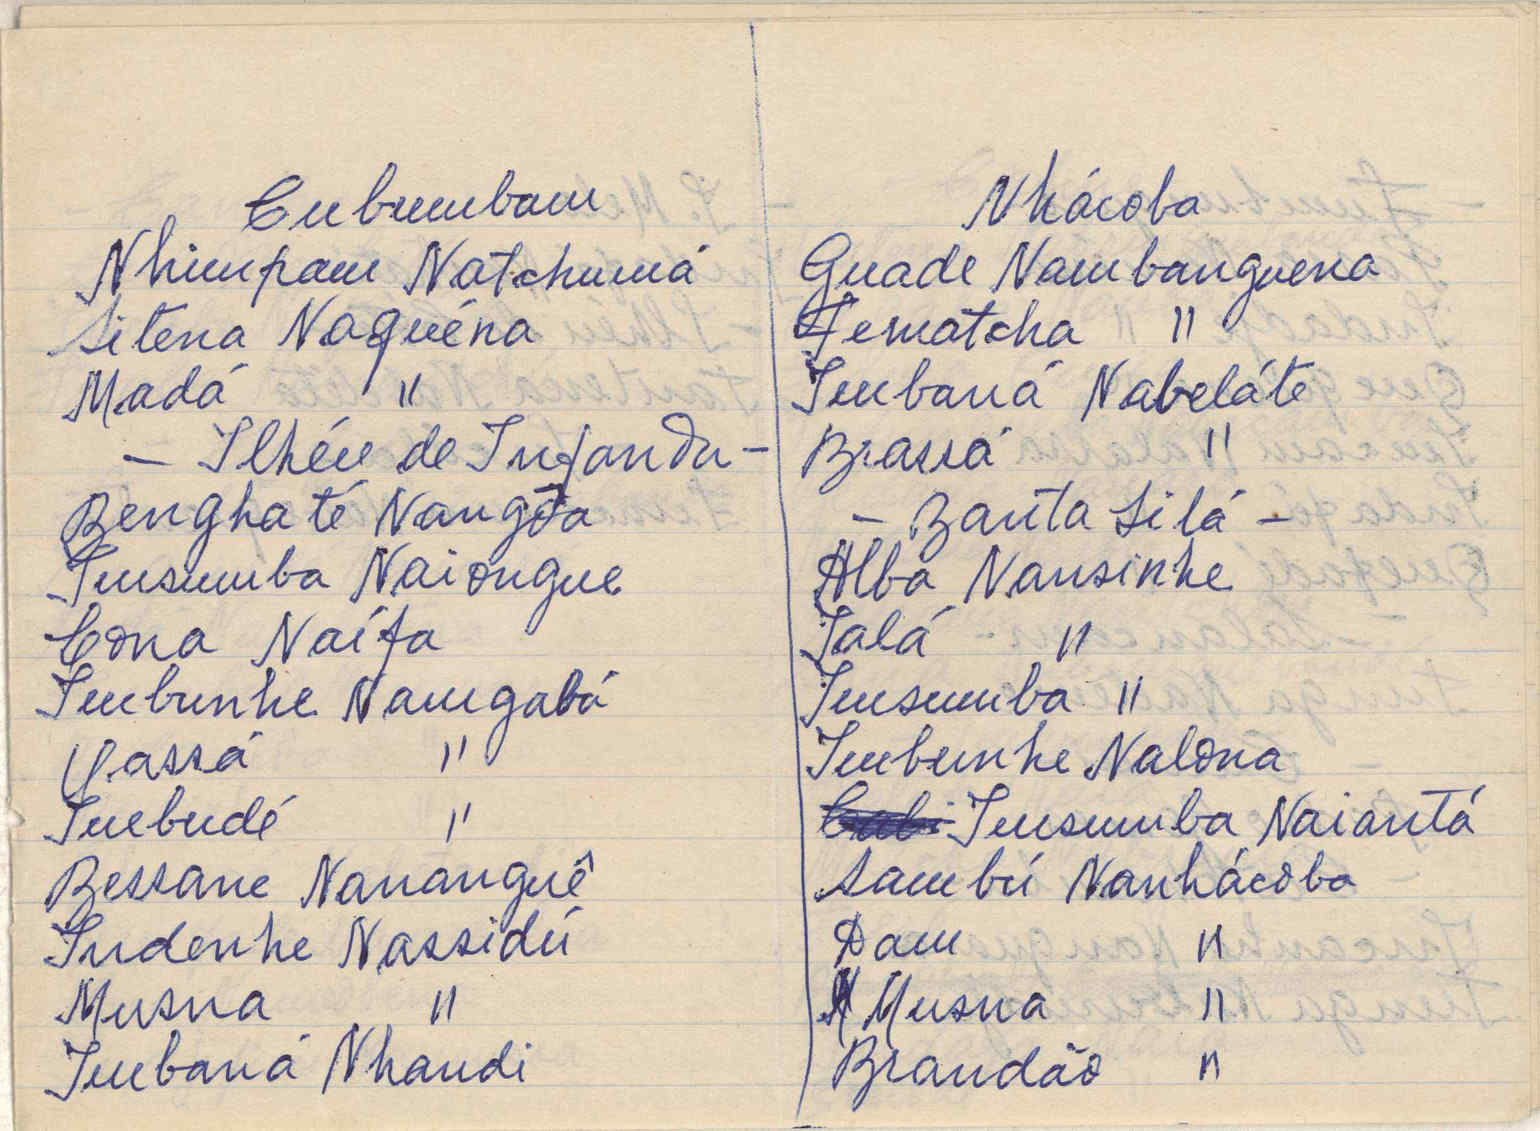 Cubumbam
Nhimpam Natchumá
Sitena Naquéna
Madá "
- Ilhéu de Infanda -
Benghaté Nangôa
Insumba Naiongue
Cona Naífa
Imbunhe Namgabá
Yassá "
Imbudé "
Bessane Nananguê
Indenhe Nassidú
Musna "
Imbaná Nhandi
Nhácoba
Guade Nambanguena
Fematcha "
Imbaná Nabeláte
Brassá "
- Banta Silá -
Alba Nansinhe
Ialá "
Insumba "
Imbunhe Nalona
Insumba Naiantá
Sambú Nanhácoba
Dam "
Musna "
Brandão "